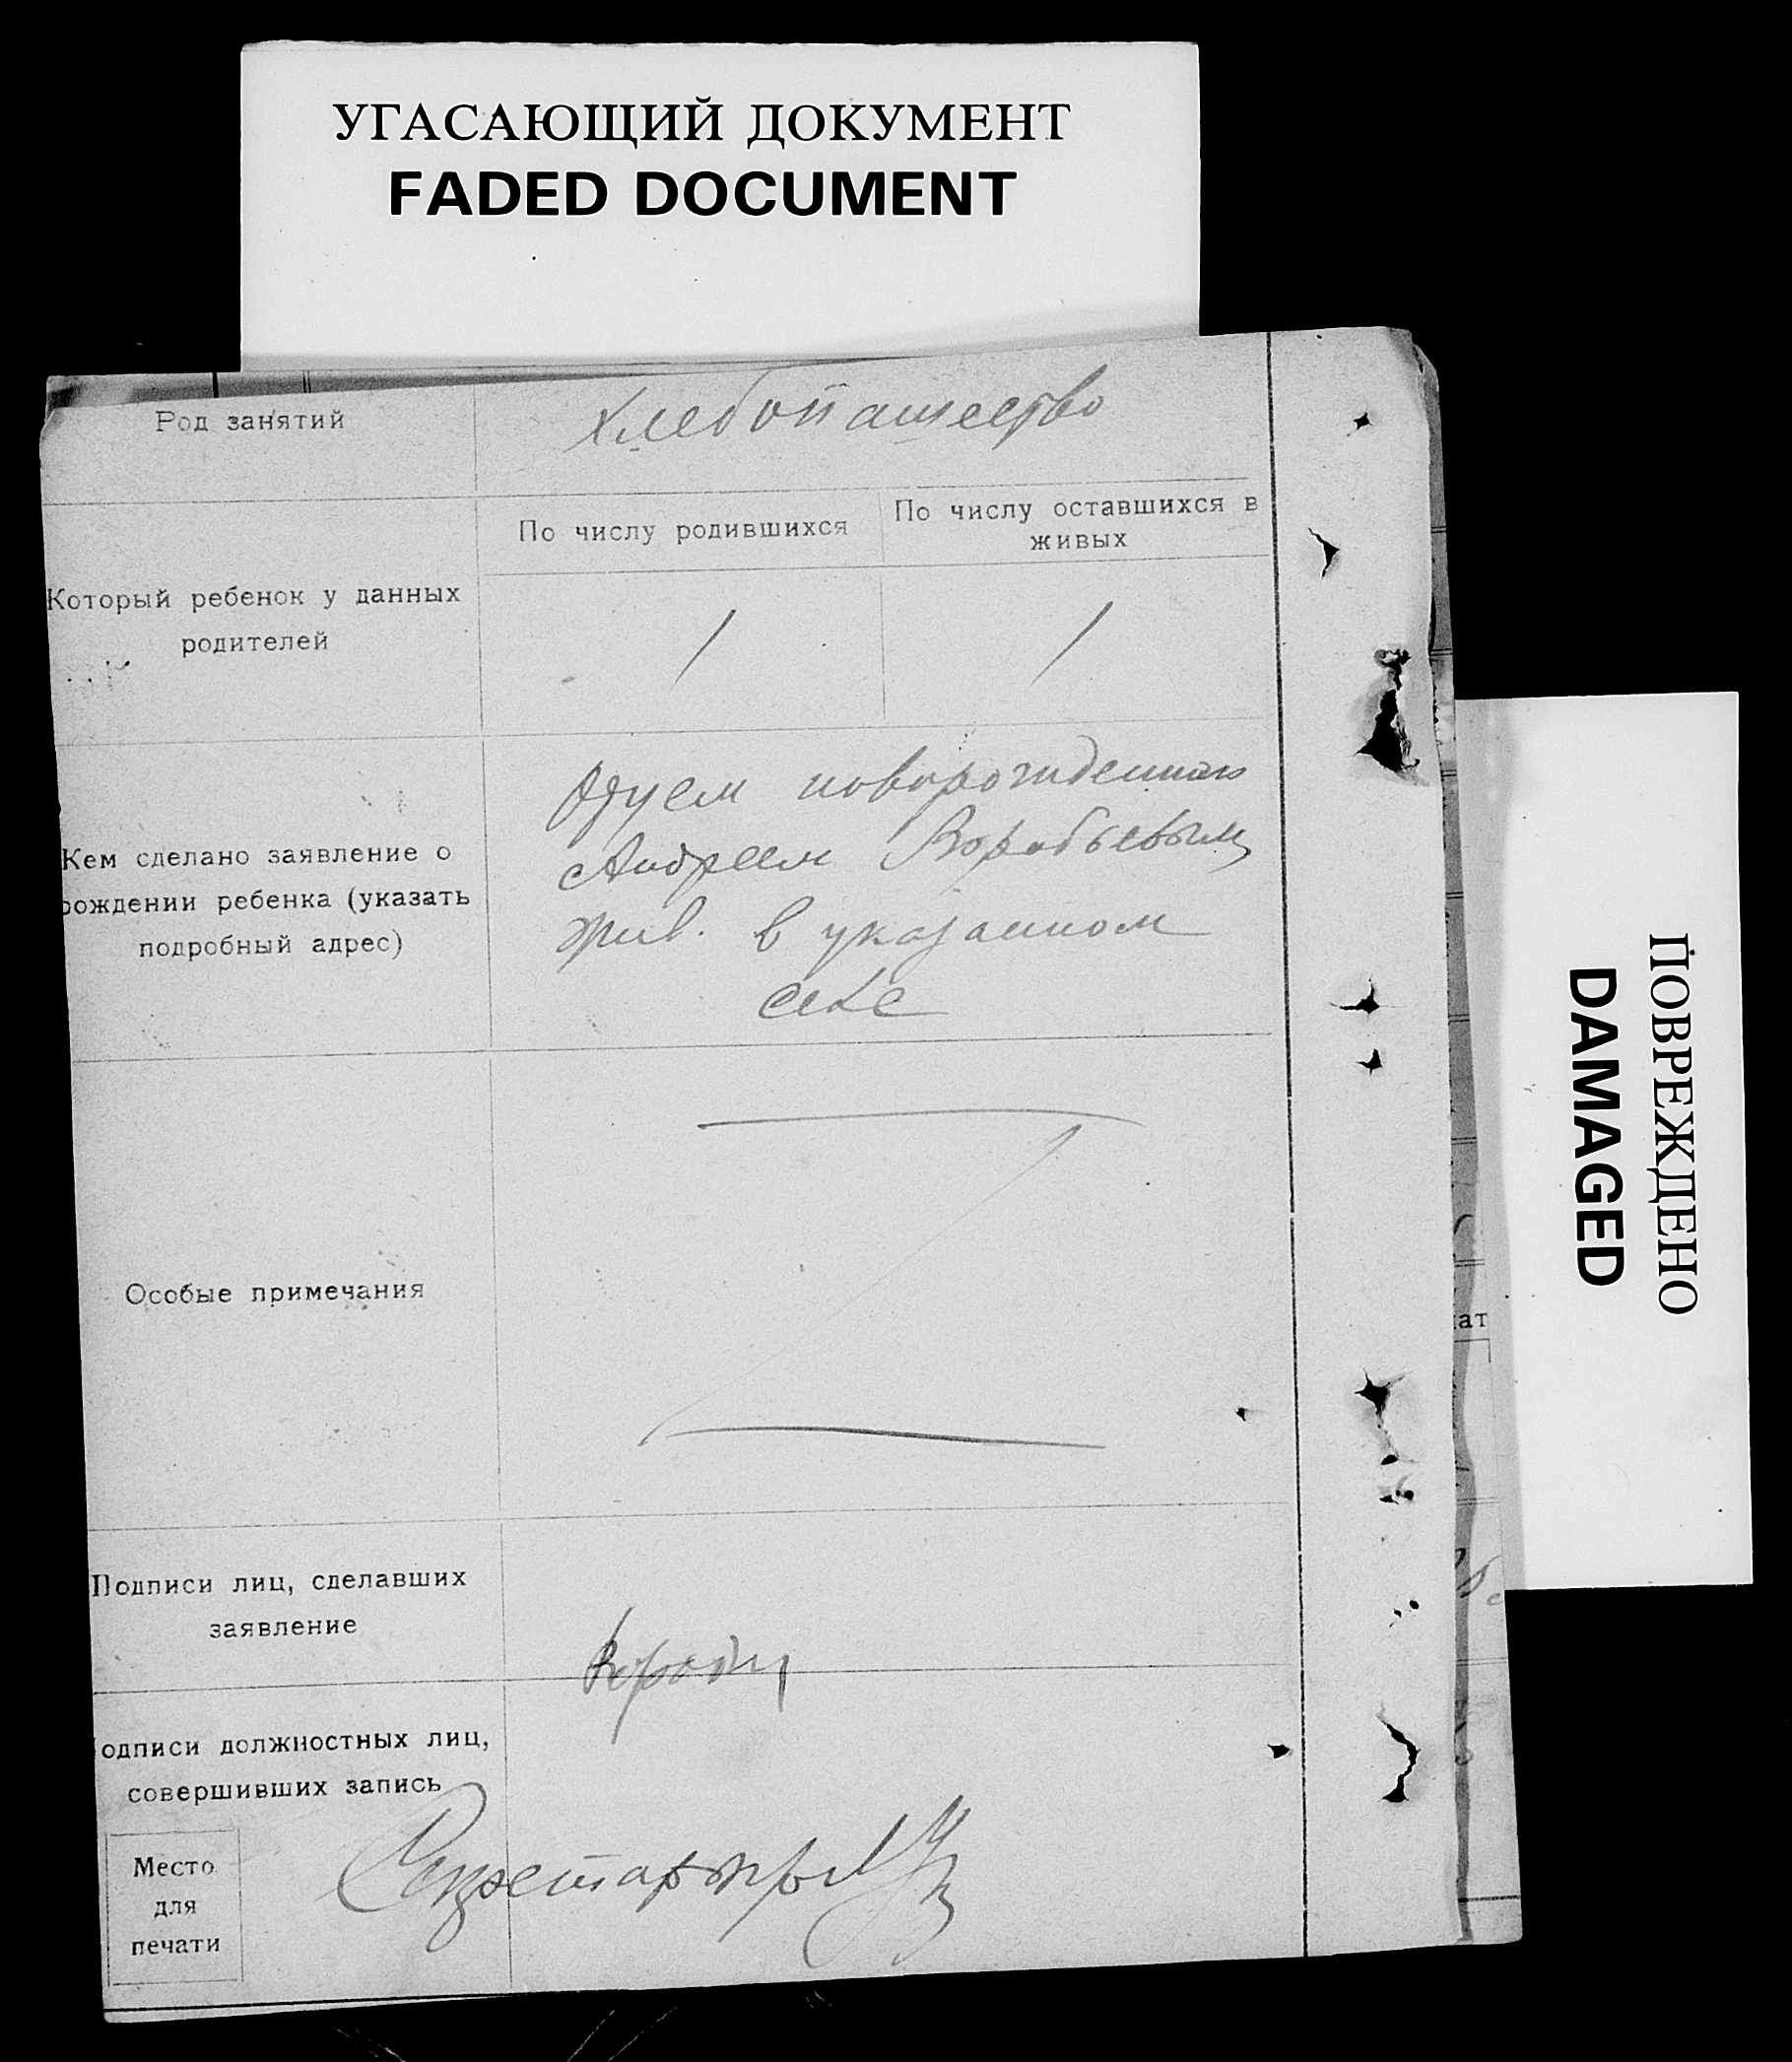 УГАСАЮЩИЙ ДОКУМЕНТ
FADED DOCUMENT
Род занятий
Хлебопашество
По числу родившихся
По числу оставшихся в
живых
Который ребенок у данных
родителей
1
1
Кем сделано заявление о
рождении ребенка (указать
подробный адрес)
Отцем новорожденнаго
Андреем Воробьевым
жив. в указанном
селе
Особые примечания
Подписи лиц, сделавших
заявление
одписи должностных лиц,
совершивших запись
Секретарь
Место
для
печати
ПОВРЕЖДЕНО
DAMAGED
ат